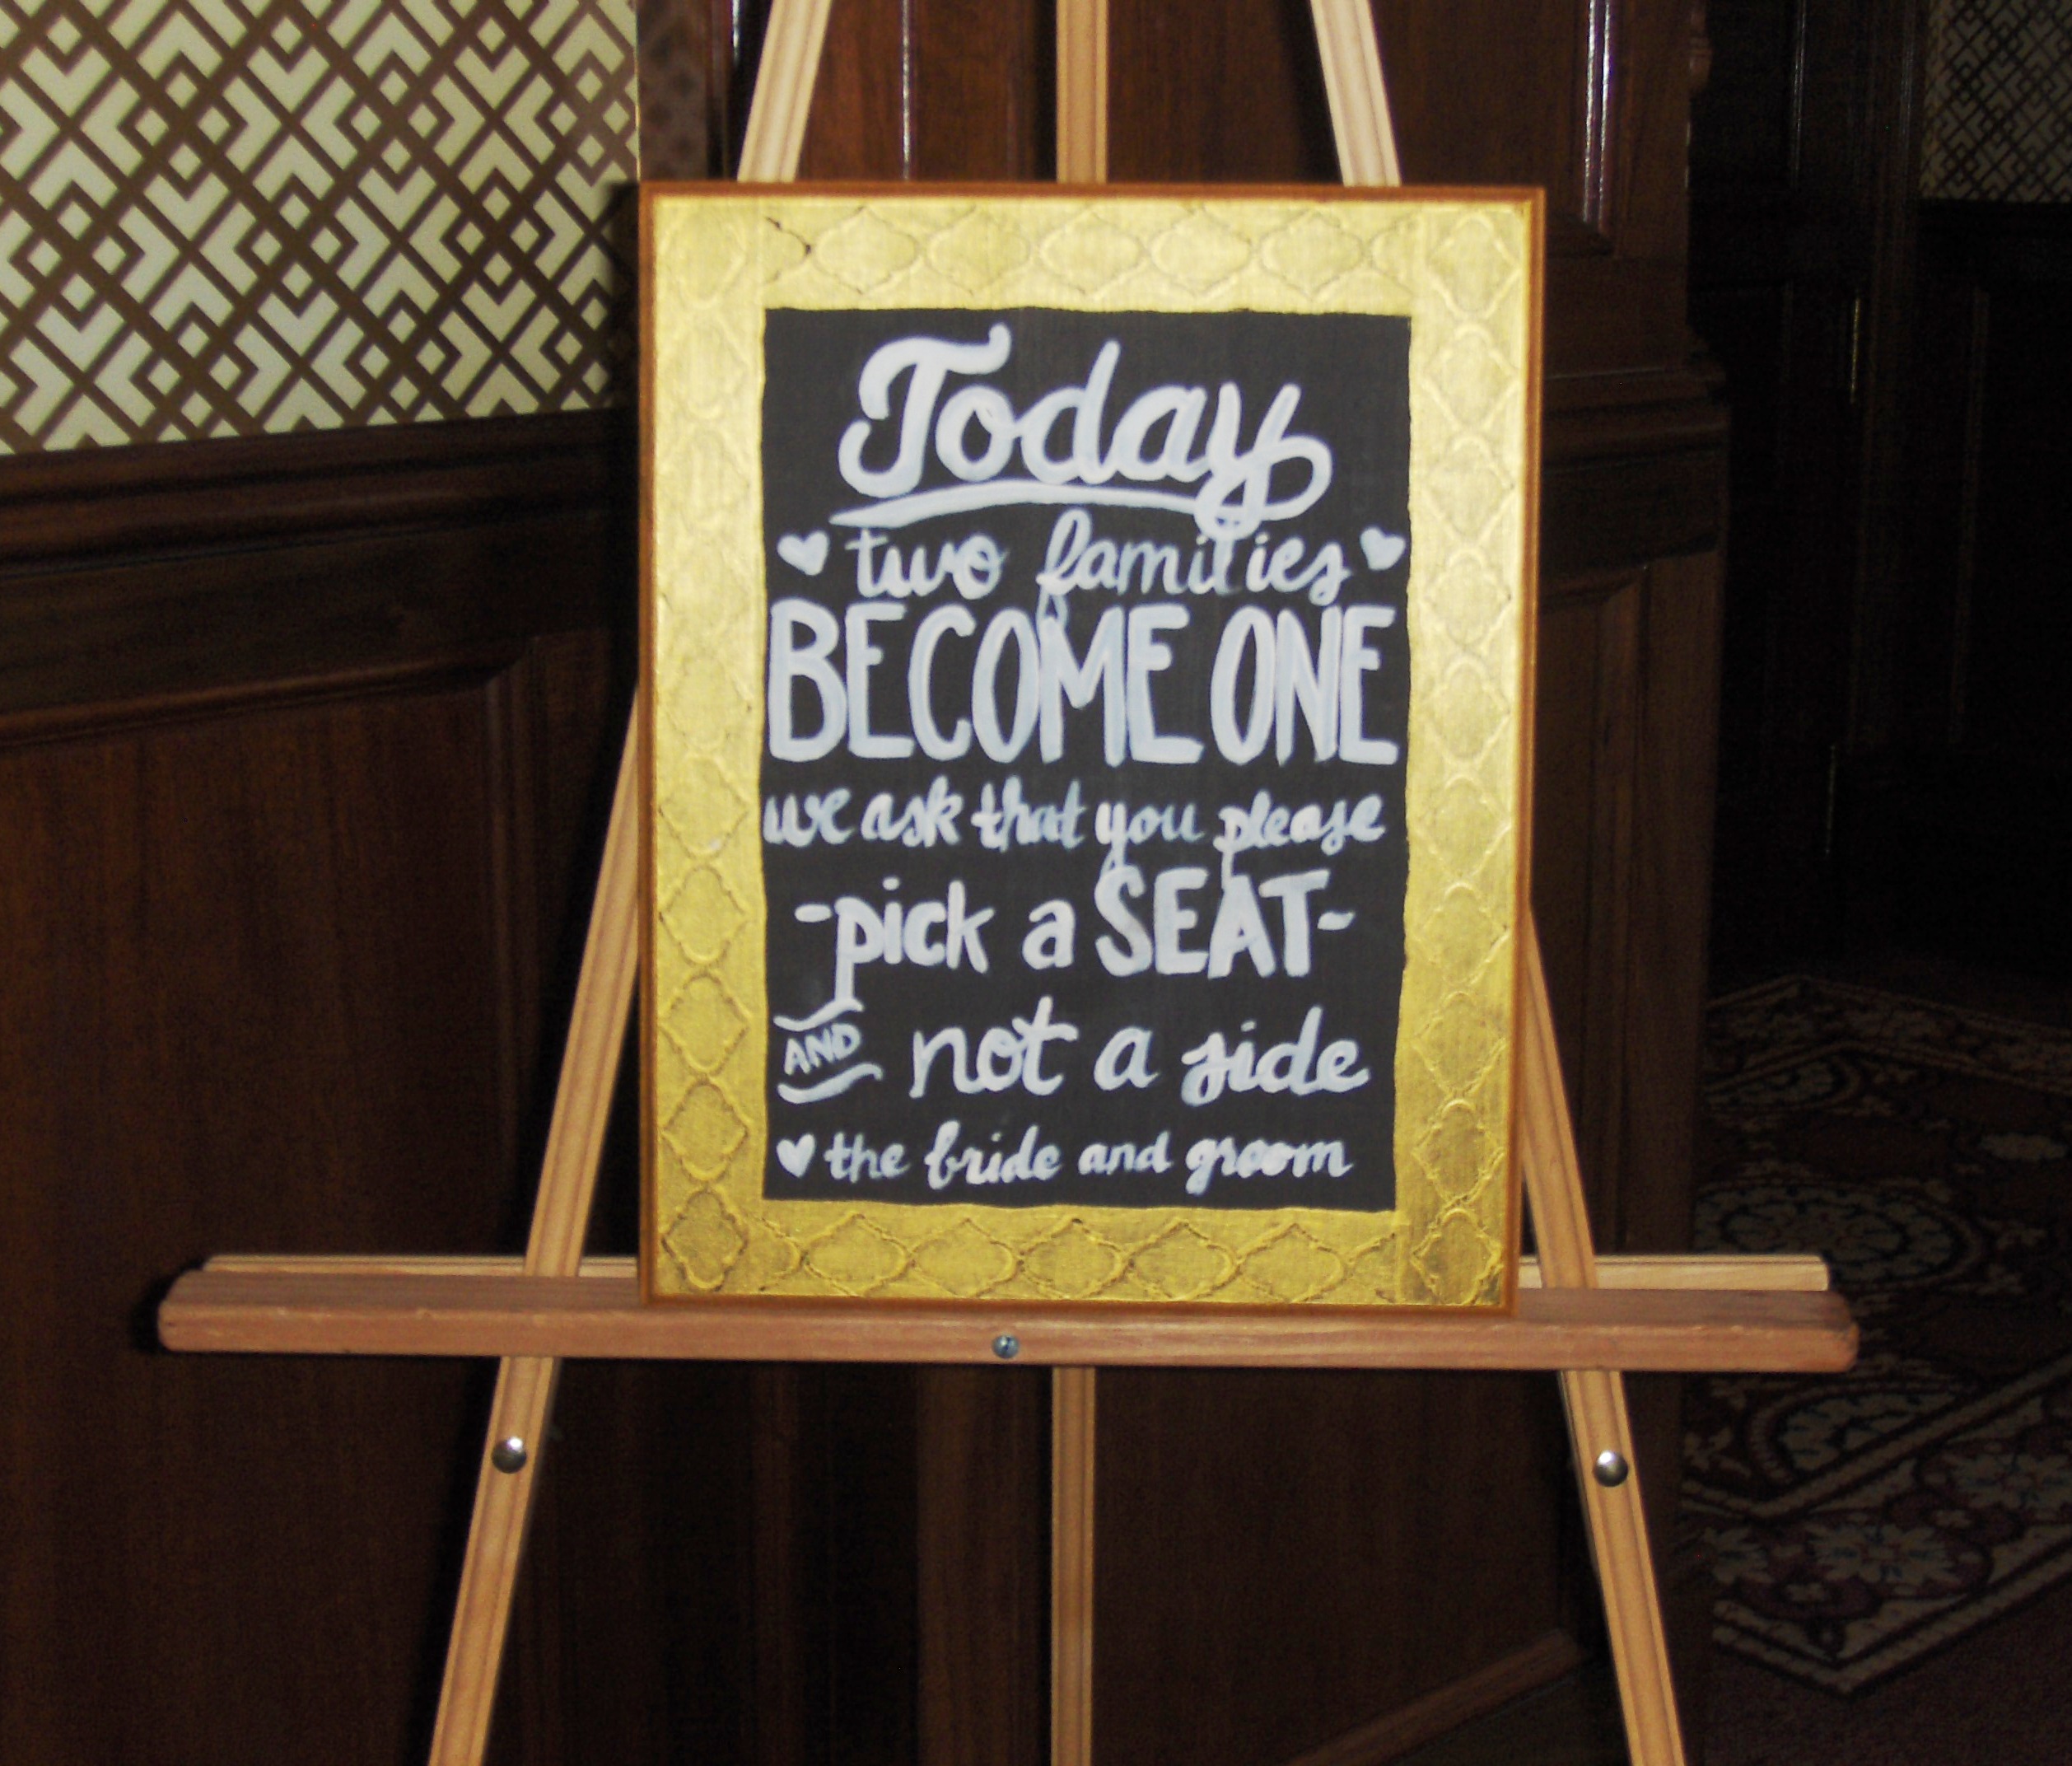 Today
♥ two families ♥
BECOME ONE
we ask that you please
-pick a SEAT-
AND not a side
♥ the bride and groom